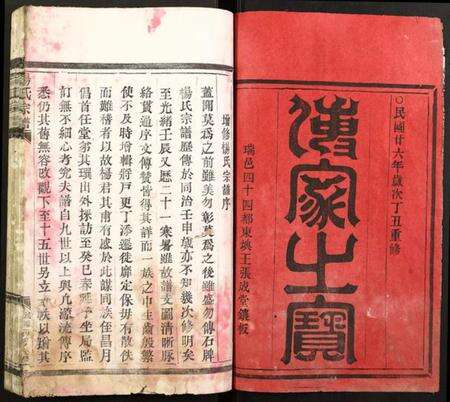 ○民國廿六年歲次丁丑重修
傳家之寶
瑞邑四十四都東㘭王張成堂鐫板
增修楊氏宗譜序
蓋聞莫爲之前雖美勿彰莫爲之後雖盛勿傳石牌
楊氏譜歷傳於同治壬申歲亦不知幾次修明矣
至光緒壬辰又歷二十一寒暑雖故譜支圖清晰脉
絡貫通序文傳贊皆得其詳而一族之中生齒殷繁
使不及時增輯將戶更丁添遷徙靡定保毋有散佚
而難稽者以故楊君其甫有感於此謀同族侄昌月
倡首任堂芬其環出外採訪至癸巳春 延予坐局監
訂無不細心考究夫譜自九世以上與凡源流傳序
悉仍其舊無容改觀下至十五世另立 支帙以瑜其
楊氏宗譜